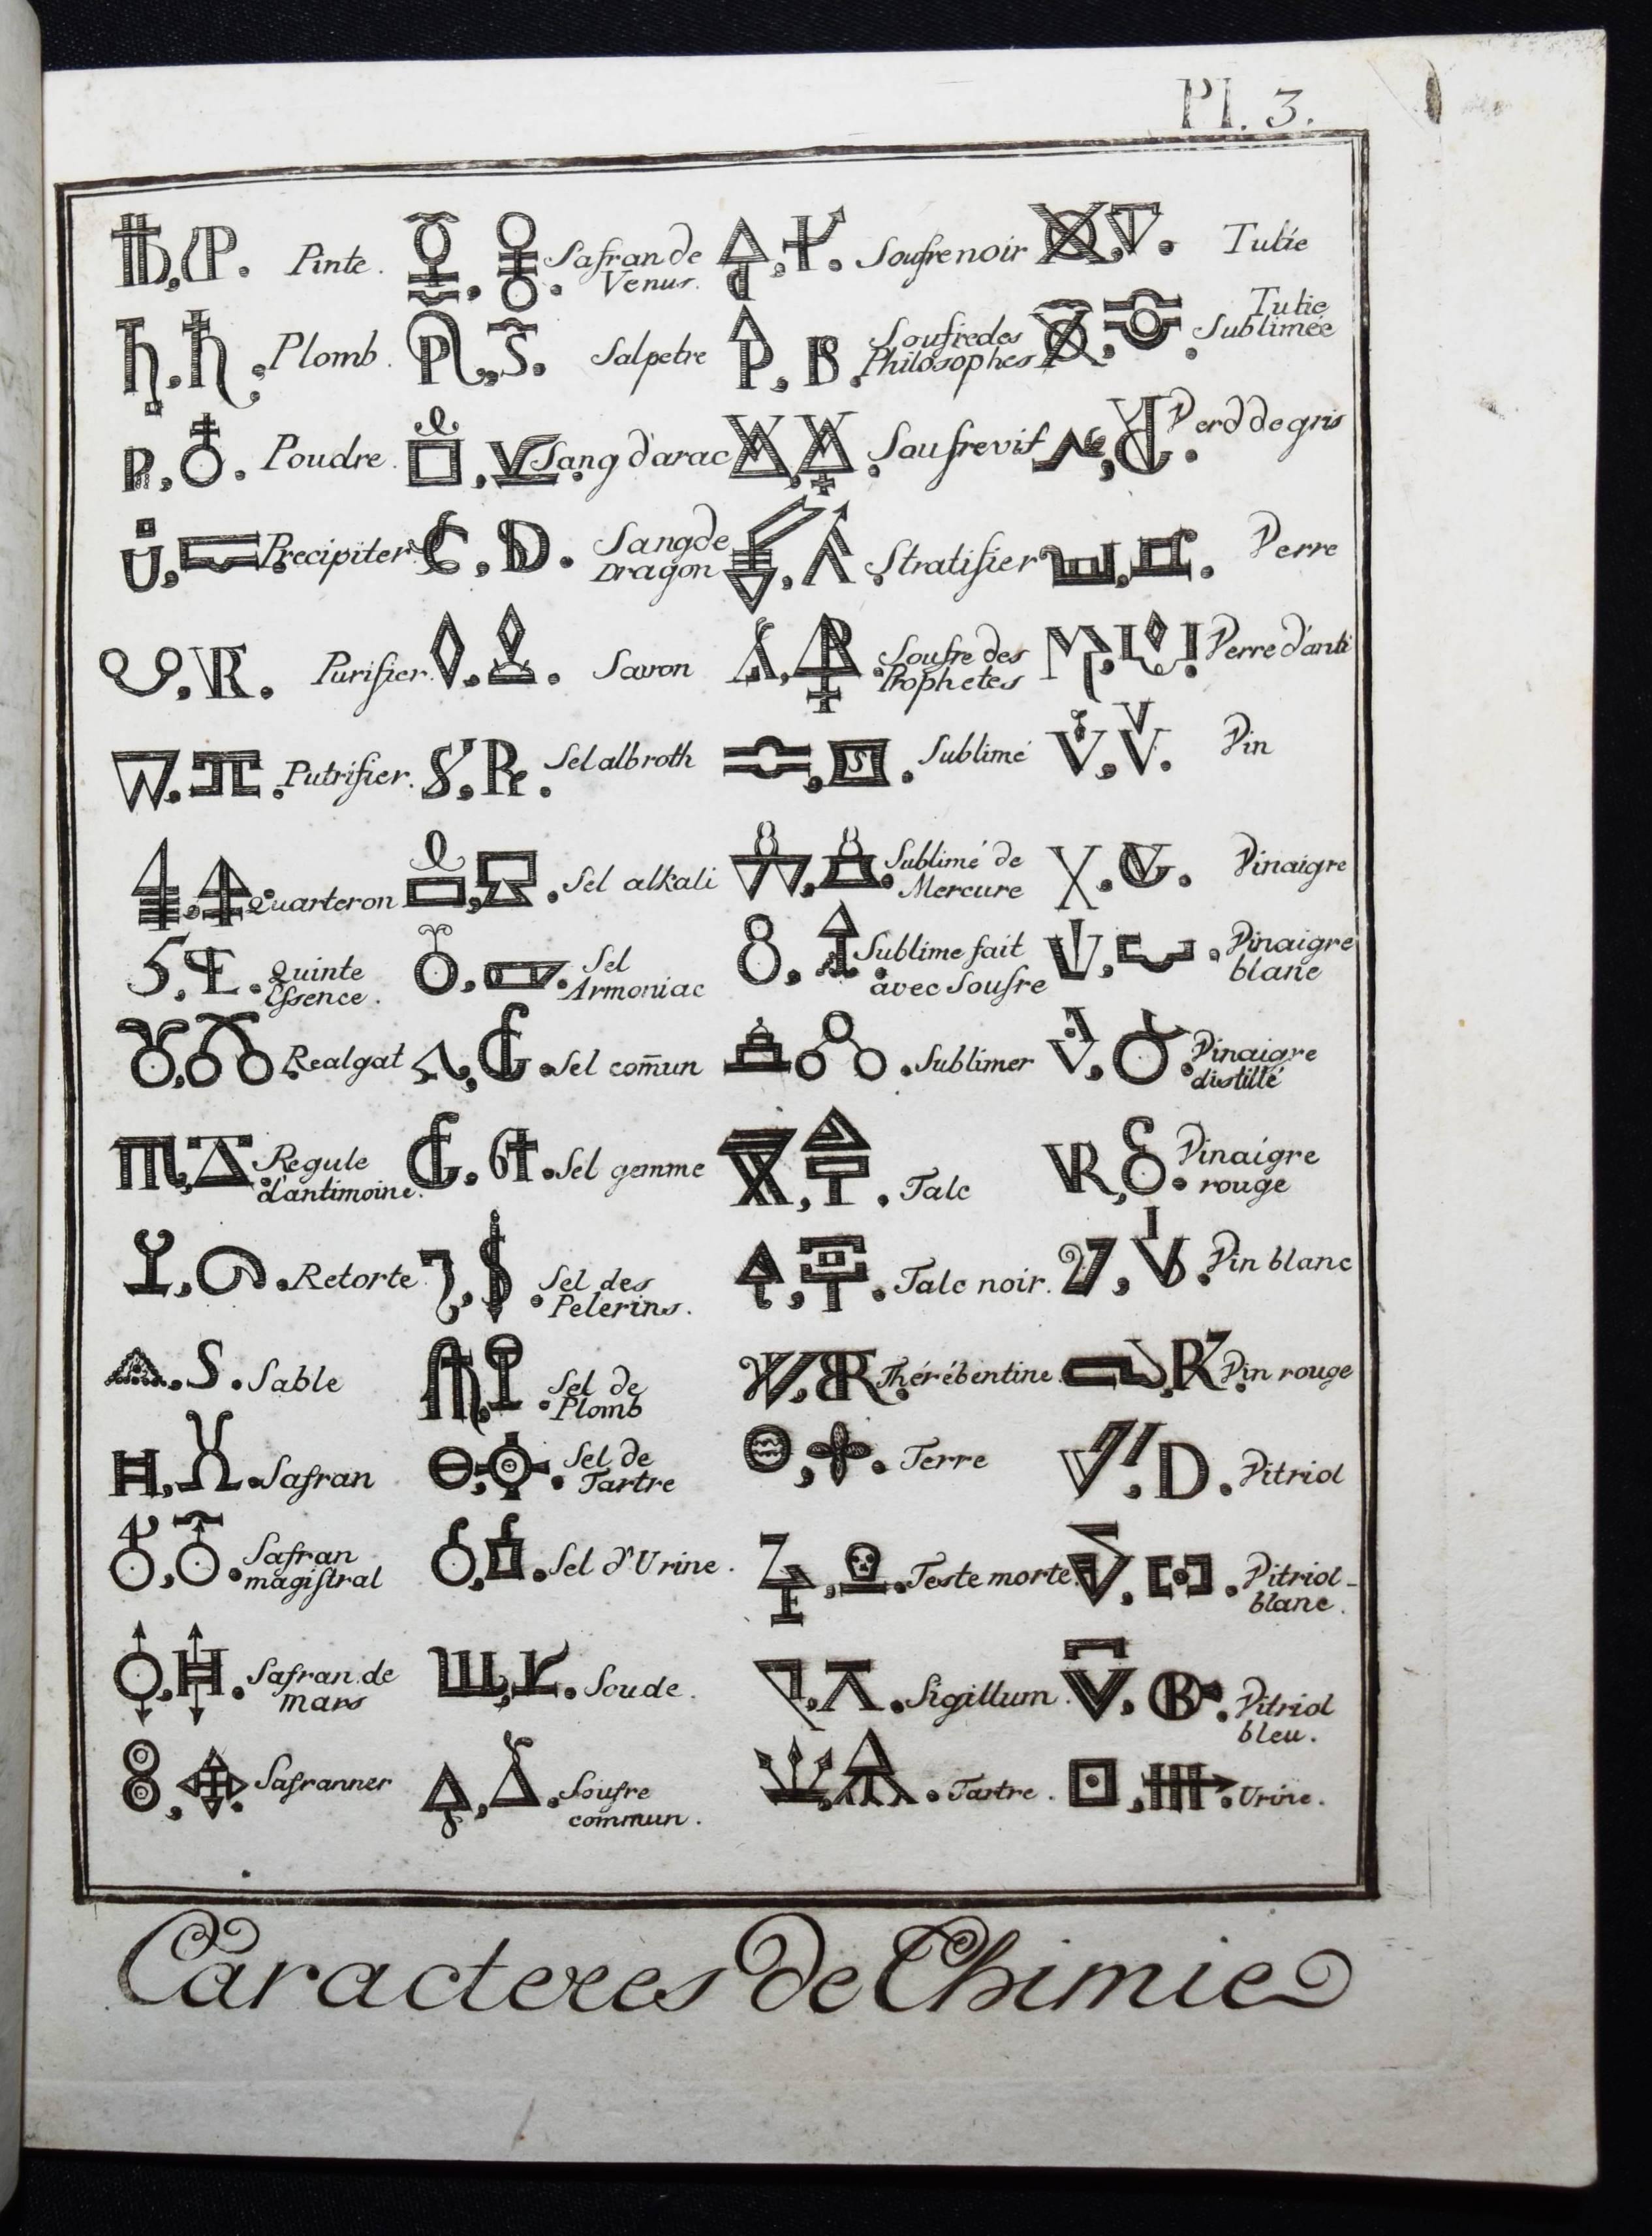 Pl. 3.
Pinte.
Plomb.
Poudre.
Precipiter.
Purifier.
Putrifier.
Quarteron
Quinte
Essence.
Realgat
Regule
d'antimoine.
Retorte
Sable
Safran
Safran
magistral
Safran de
mars
Safranner
Safran de
Venus.
Salpetre
Sang d'arac
Sang de
Dragon
Savon
Sel albroth
Sel alkali
Sel
Armoniac
Sel com̄un
Sel gemme
Sel des
Pelerins.
Sel de
Plomb
Sel de
Tartre
Sel d'Urine.
Soude.
Soufre
commun.
Soufre noir
Soufre des
Philosophes
Soufre vif
Stratifier
Soufre des
Prophetes
Sublimé
Sublimé de
Mercure
Sublime fait
avec Soufre
Sublimer
Talc
Talc noir.
Thérébentine
Terre
Teste morte
Sigillum.
Tartre.
Tutie
Tutie
Sublimée
Verd de gris
Verre
Verre d'anti
Vin
Vinaigre
Vinaigre
blanc
Vinaigre
distillé
Vinaigre
rouge
Vin blanc
Vin rouge
Vitriol
Vitriol
blanc.
Vitriol
bleu.
Urine.
Caracteres de Chimie